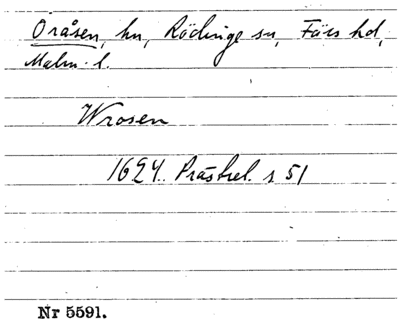 Oråsen, hn, Rödinge sn, Färs hd,
Malm. l.
Wrosen
1624. Prästrel. s 51
Nr 5591.